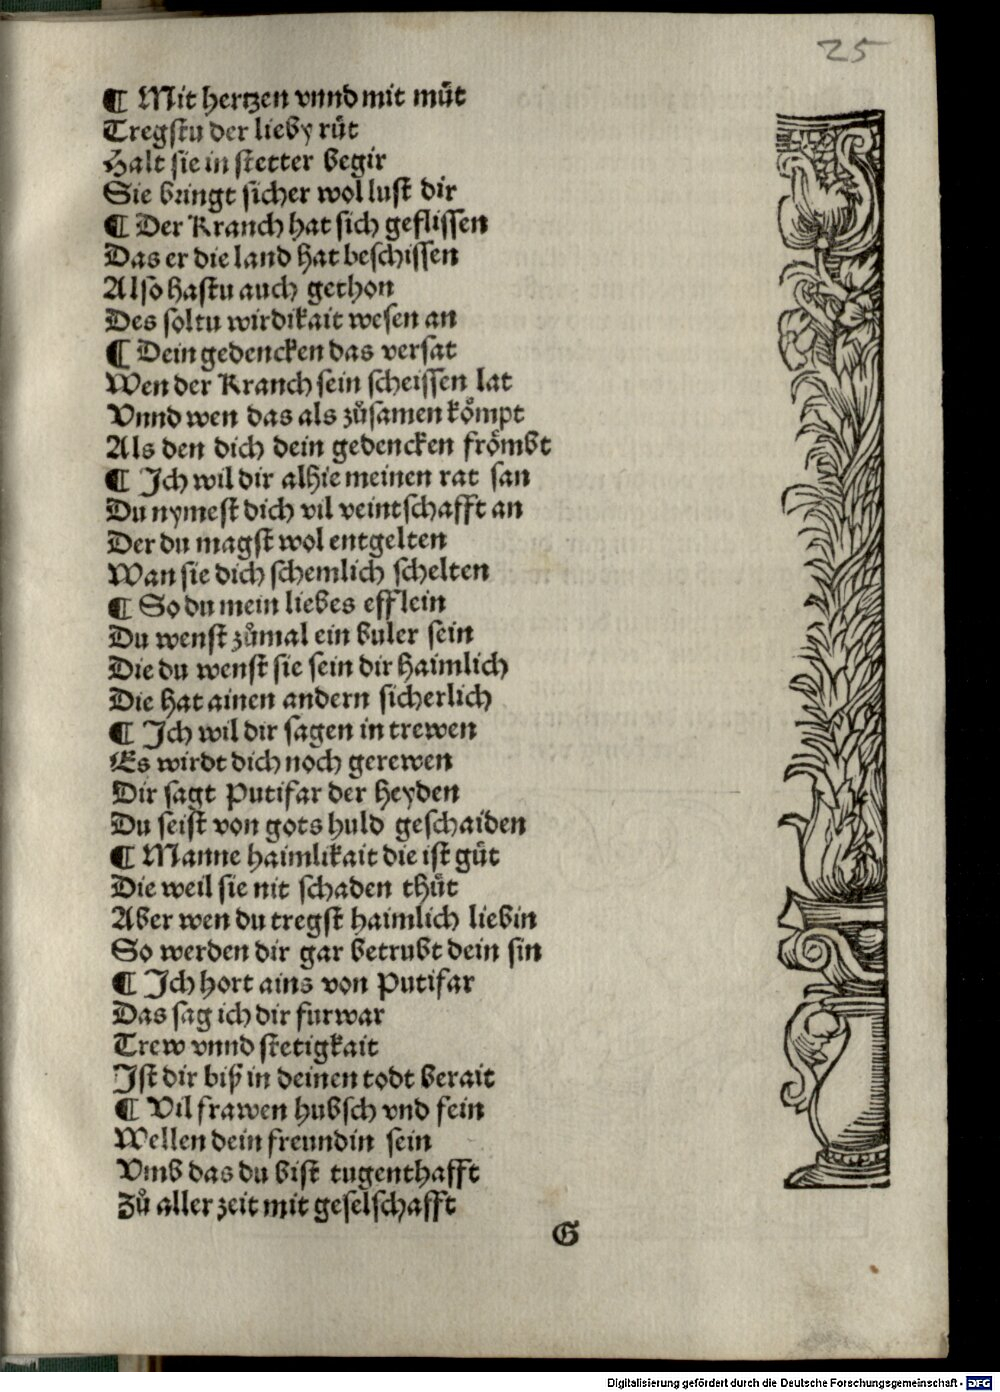 25
¶ Mit hertzen vnnd mit můt
Tregstu der lieby růt
Halt sie in stetter begir
Sie bringt sicher wollust dir
¶ Der Kranch hat sich geflissen
Das er die land hat beschissen
Also hastu auch gethon
Des soltu wirdikait wesen an
¶ Dein gedencken das versat
Wen der Kranch sein scheissen lat
Vnnd wen das als zůsamen kömpt
Als den dich dein gedencken frömbt
¶ Ich wil dir alhie meinen rat san
Du nymest dich vil veintschafft an
Der du magst wol entgelten
Wan sie dich schemlich schelten
¶ So du mein liebes efflein
Du wenst zůmal ein buler sein
Die du wenst sie sein dir haimlich
Die hat ainen andern sicherlich
¶ Ich wil dir sagen in trewen
Es wirdt dich noch gerewen
Dir sagt Putifar der heyden
Du seist von gots huld geschaiden
¶ Manne haimlikait die ist gůt
Die weil sie nit schaden thůt
Aber wen du tregst haimlich liebin
So werden dir gar betrubt dein sin
¶ Ich hort ains von Putifar
Das sag ich dir furwar
Trew vnnd stetigkait
Ist dir biß in deinen todt berait
¶ Vil frawen hubsch vnd fein
Wellen dein freundin sein
Vmb das du bist tugenthafft
Zů aller zeit mit geselschafft
G
Digitalisierung gefördert durch die Deutsche Forschungsgemeinschaft - DFG